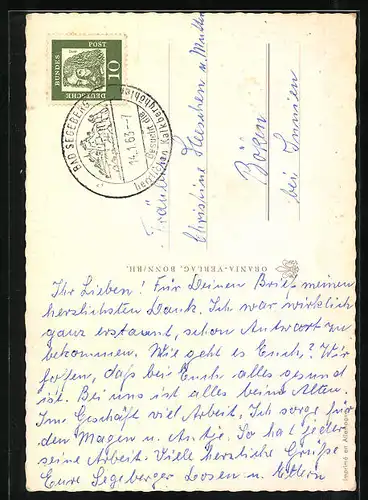 DEUTSCHE
BUNDES
POST
10
BAD SEGEBERG
14.1.63-7
Fräulein
Christine Heeschen u. Mutter
Böken
bei Innien
ORANIA-VERLAG, BONN/RH.
Imprimé en Allemagne
Ihr Lieben! Für Deinen Brief meinen
herzlichsten Dank. Ich war wirklich
ganz erstaunt, schon Antwort zu
bekommen. Wie geht es Euch? Wir
hoffen, daß bei Euch alles gesund
ist. Bei uns ist alles beim Alten.
Im Geschäft viel Arbeit, Ich sorge für
den Magen u. Antje. So hat jeder
seine Arbeit. Viele herzliche Grüße
Eure Segeberger u. Eltern